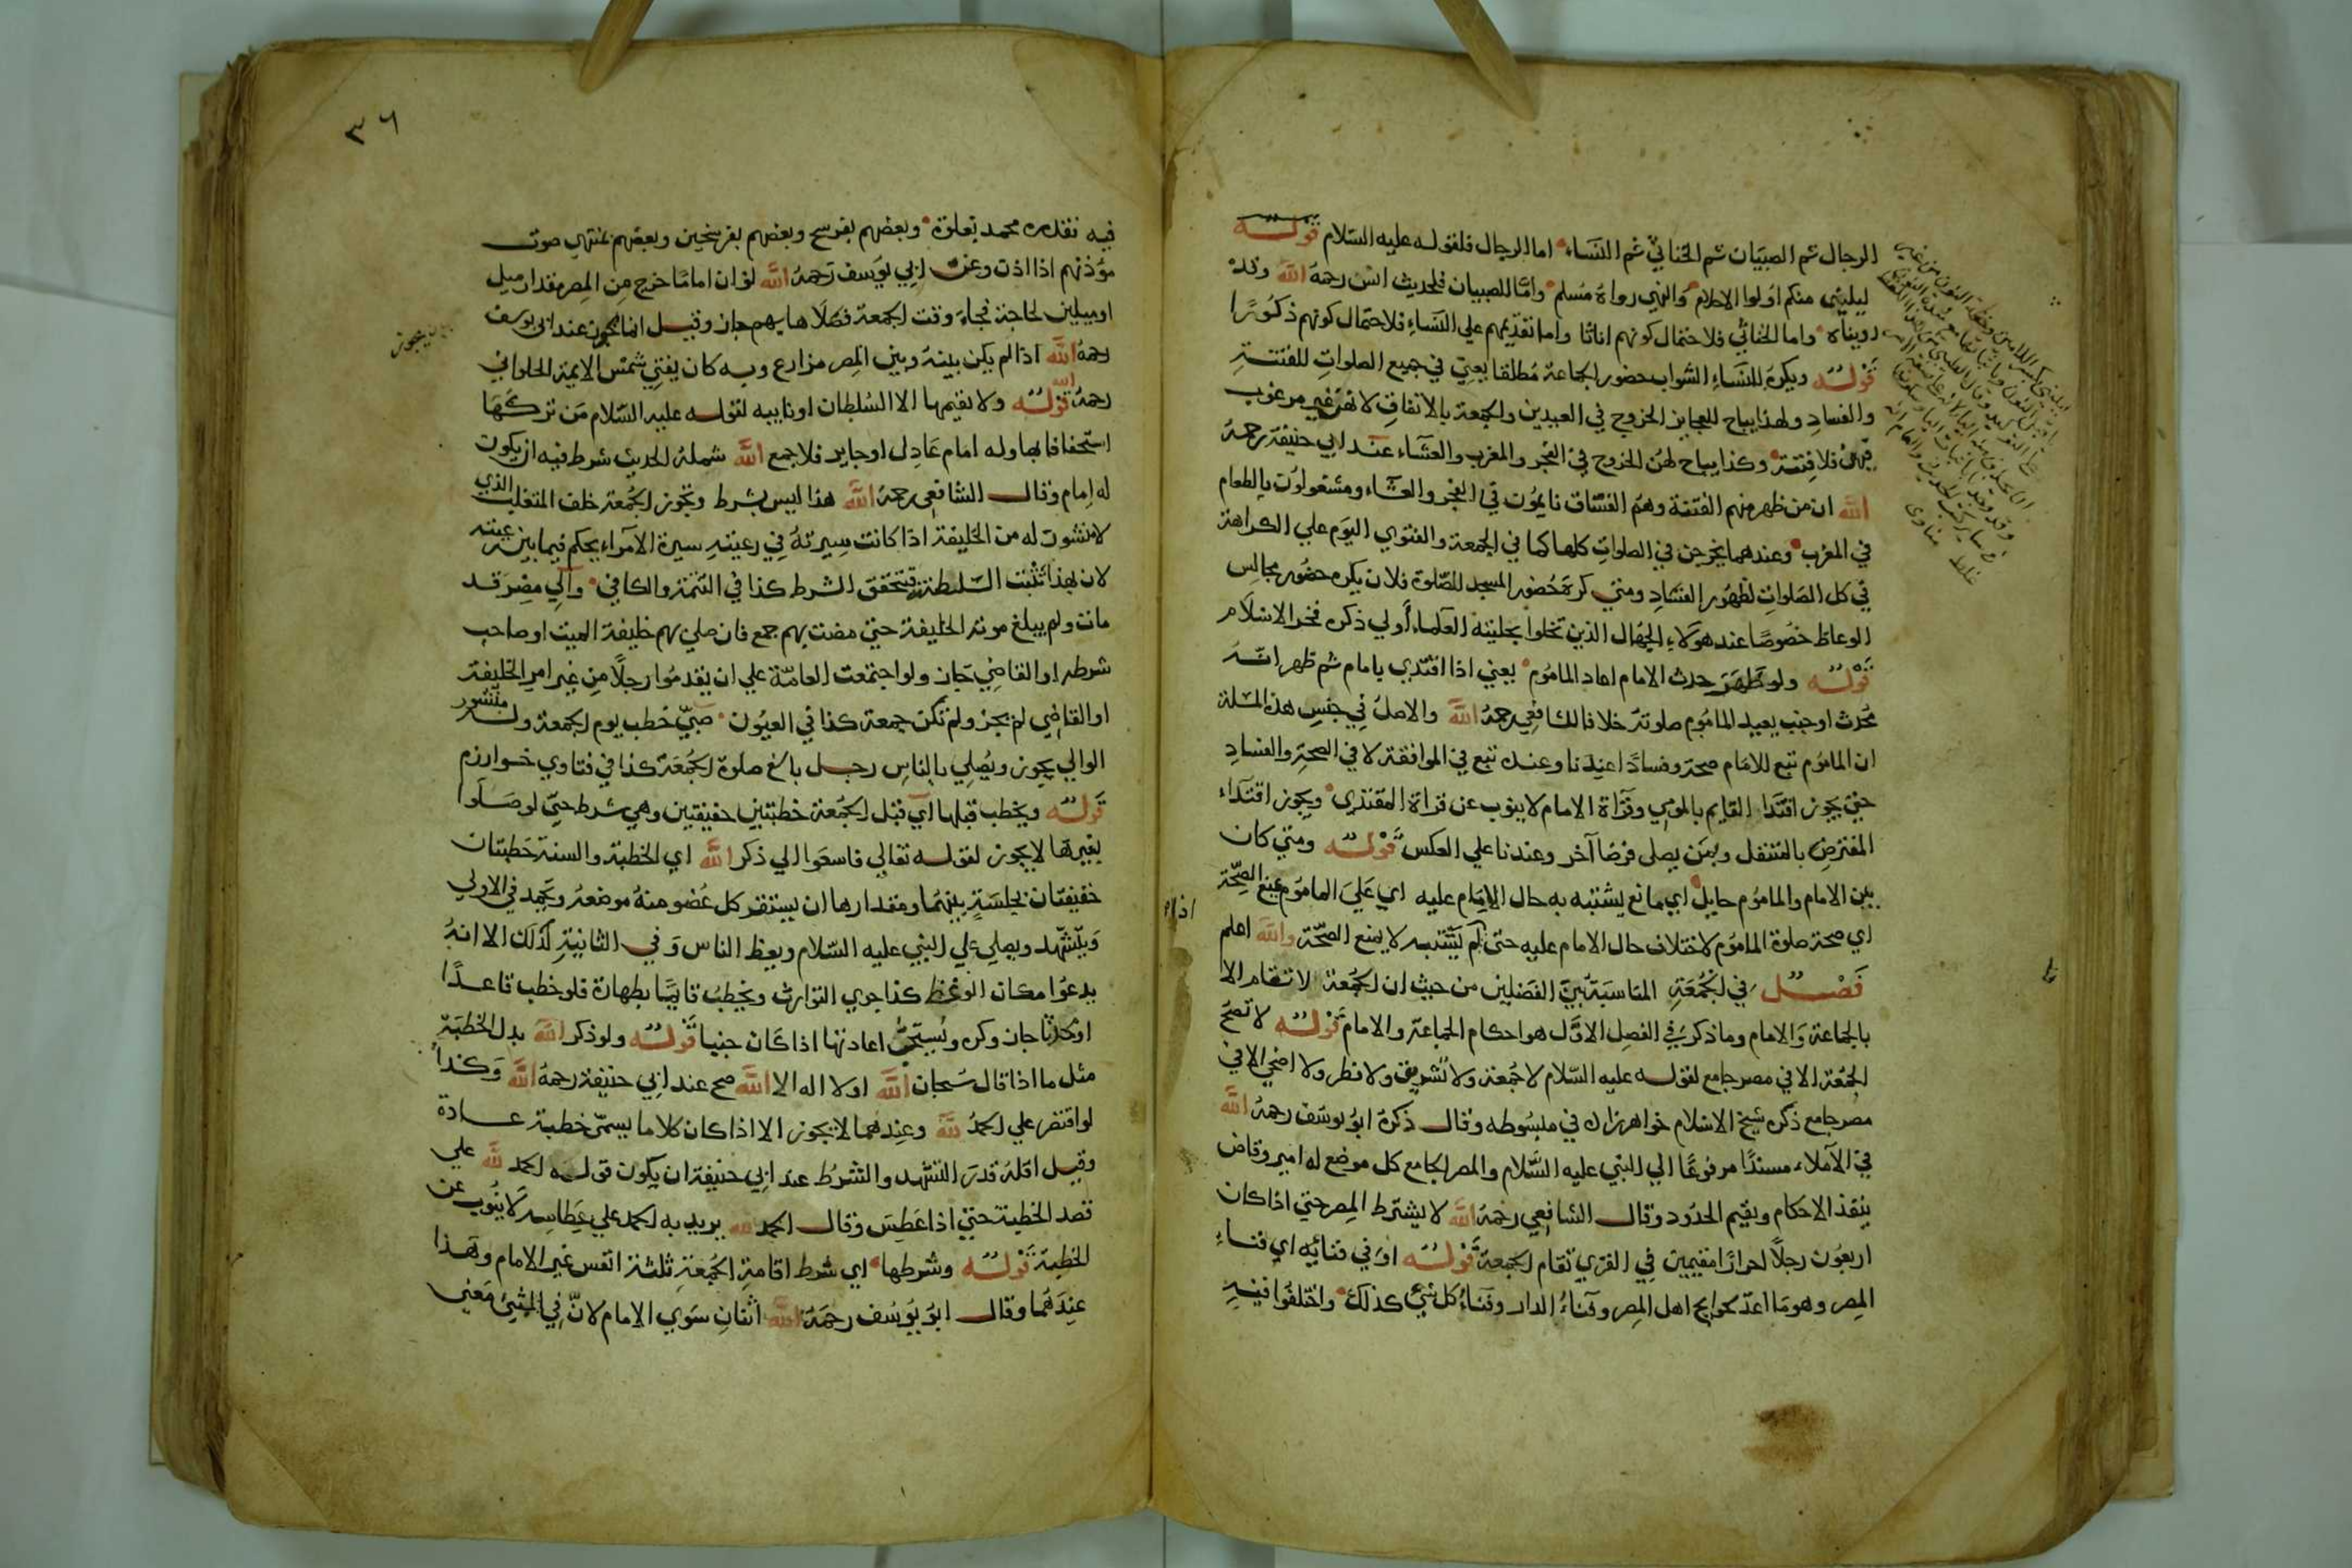 الرجال ثم الصبيان ثم الخناثي ثم النساء اما الرجال فلقوله عليه السلام قوله
ليليني منكم اولوا الاحلام والنهي رواه مسلم واما الصبيان فلحديث انس رحمه الله وقد
رويناه واما الخناثي فلاحتمال كونهم اناثا واما تقديمهم علي النساء فلاحتمال كونهم ذكورا
قوله ويكره للنساء الشواب حضور الجماعة مطلقا يعني في جميع الصلوات للفتنة
والفساد ولهذا يباح للعجايز الخروج في العيدين والجمعة بالاتفاق لانهن غير مرغوب
فيهن فلا فتنة وكذا يباح لهن الخروج في الفجر والمغرب والعشاء عند ابي حنيفة رحمه
الله ان من ظهر منهم الفتنة وهم الفساق نايمون في الفجر والعشاء ومشغولون بالطعام
في المغرب وعندهما يخرجن في الصلوات كلها كما في الجمعة والفتوي اليوم علي الكراهة
في كل الصلوات لظهور الفساد ومتي كره حضور المسجد للصلوة فلان يكره حضور مجالس
الوعاظ خصوصا عند هولاء الجهال الذين تحلوا بحلية العلماء أولي ذكره فخر الاسلام
قوله ولو ظهر حدث الامام اعاد الماموم يعني اذا اقتدي بامام ثم ظهر انه
محدث او جنب يعيد الماموم صلوته خلافا للشافعي رحمه الله والاصل في جنس هذه المسلة
ان الماموم تبع للامام صحة وفسادا عندنا وعنده تبع في الموافقة لا في الصحة والفساد
حتي يجوز اقتدا القايم بالمومي وقراة الامام لا ينوب عن قراة المقتدي ويجوز اقتداء
المفترض بالمتنفل وبمن يصلي فرضا آخر وعندنا علي العكس قوله ومتي كان
بين الامام والماموم حايل اي مانع يشتبه به حال الامام عليه اي علي الماموم يمنع الصحة
اي صحة صلوة الماموم لاختلاف حال الامام عليه حتي لم يشتبه لا يمنع الصحة والله اعلم
فصل في الجمعة المناسبة بين الفصلين من حيث ان الجمعة لا تقام الا
بالجماعة والامام وما ذكر في الفصل الاول هو احكام الجماعة والامام قوله لا تصح
الجمعة الا في مصر جامع لقوله عليه السلام لا جمعة ولا تشريق ولا فطر ولا اضحي الا في
مصر جامع ذكره شيخ الاسلام خواهرزاده في مبسوطه وقال ذكره ابو يوسف رحمه الله
في الآملاء مسندا مرفوعا الي النبي عليه السلام والمصر الجامع كل موضع له امير وقاض
ينفذ الاحكام ويقيم الحدود وقال الشافعي رحمه الله لا يشترط المصر حتي اذا كان
اربعون رجلا احرارا مقيمين في القري تقام الجمعة قوله او في فنائه اي فناء
المصر وهو ما اعد لحوايج اهل المصر وفناء الدار وفناء كل شئ كذلك واختلفوا فيه
اذا
٣٦
فيه نقدره محمد بغلوة وبعضهم بفرسخ وبعضهم بفرسخين وبعضهم بمنتهي صوت
مؤذنهم اذا اذن وعن ابي يوسف رحمه الله لو ان اماما خرج من المصر مقدار ميل
او ميلين لحاجة فجاء وقت الجمعة فصلاها بهم جاز وقيل انما يجوز عند ابي يوسف
رحمه الله اذا لم يكن بينه وبين المصر مزارع وبه كان يفتي شمس الايمة الحلواني
رحمه الله قوله ولا يقيمها الا السلطان او نايبه لقوله عليه السلام من تركها
استخفافا بها وله امام عادل او جاير فلا جمع الله شمله الحديث شرط فيه ان يكون
له امام وقال الشافعي رحمه الله هذا ليس بشرط وتجوز الجمعة خلف المتغلب الذي
لا منشور له من الخليفة اذا كانت سيرته في رعيته سيرة الآمراء يحكم فيما بين رعيته
لان بهذا تثبت السلطنة فيتحقق الشرط كذا في التتمة والكافي والي مصر قد
مات ولم يبلغ موته الخليفة حتي مضت بهم جمع فان صلي بهم خليفة الميت او صاحب
شرطه او القاضي جاز ولو اجتمعت العامة علي ان يقدموا رجلا من غير امر الخليفة
او القاضي لم يجز ولم تكن جمعة كذا في العيون صبي خطب يوم الجمعة وله منشور
الوالي يجوز ويصلي بالناس رجل بالغ صلوة الجمعة كذا في فتاوي خوارزم
قوله ويخطب قبلها اي قبل الجمعة خطبتين خفيفتين وهي شرط حتي لو صلوا
بغيرها لا يجوز لقوله تعالي فاسعوا الي ذكر الله اي الخطبة والسنة خطبتان
خفيفتان بجلسة بينهما ومقدارها ان يستقر كل عضو منه موضعه ويحمد في الاولي
ويتشهد ويصلي علي النبي عليه السلام ويعظ الناس وفي الثانية كذلك الا انه
يدعوا مكان الوعظ كذا جري التوارث ويخطب قايما بطهارة فلو خطب قاعدا
او محدثا جاز وكره ويستحب اعادتها اذا كان جنبا قوله ولو ذكر الله بدل الخطبة
مثل ما اذا قال سبحان الله او لا اله الا الله صح عند ابي حنيفة رحمه الله وكذا
لو اقتصر علي الحمد لله وعندهما لا يجوز الا اذا كان كلاما يسمي خطبة عادة
وقيل اقله قدر التشهد والشرط عند ابي حنيفة ان يكون قوله الحمد لله علي
قصد الخطبة حتي اذا عطس وقال الحمد لله يريد به الحمد علي عطاسه لا ينوب عن
الخطبة قوله وشرطها اي شرط اقامة الجمعة ثلثة انفس غير الامام وهذا
عندهما وقال ابو يوسف رحمه الله اثنان سوي الامام لان في المثني معني